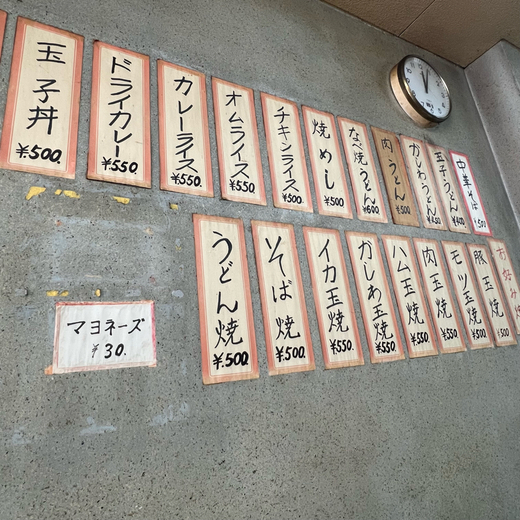 玉子丼 ¥500.
ドライカレー ¥550.
カレーライス ¥550.
オムライス ¥550.
チキンライス ¥500.
焼めし ¥500
なべ焼うどん ¥600
肉うどん ¥500
かしわうどん
玉子うどん ¥400
中華そば ¥500
うどん焼 ¥500.
そば焼 ¥500.
イカ玉焼 ¥550.
かしわ玉焼 ¥550
ハム玉焼 ¥550
肉玉焼 ¥550
モツ玉焼 ¥500
豚玉焼 ¥500
お好み焼
マヨネーズ
¥30.